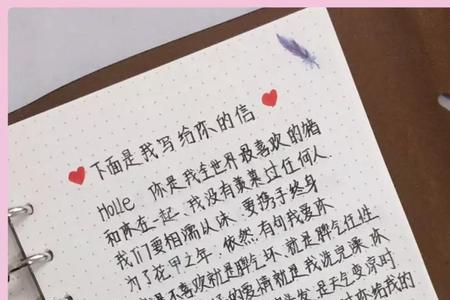 下面是我写给你的信
Holle 你是我全世界最喜欢的猪
和你在一起、我没有羡慕过任何人、
我们要相濡以沫、要携手终身
为了花甲之年、依然有句我爱你
是不喜欢就是脾气坏、就是脾气任性
的爱情就是我洗完澡、你
发、是天气变凉时
你给我的